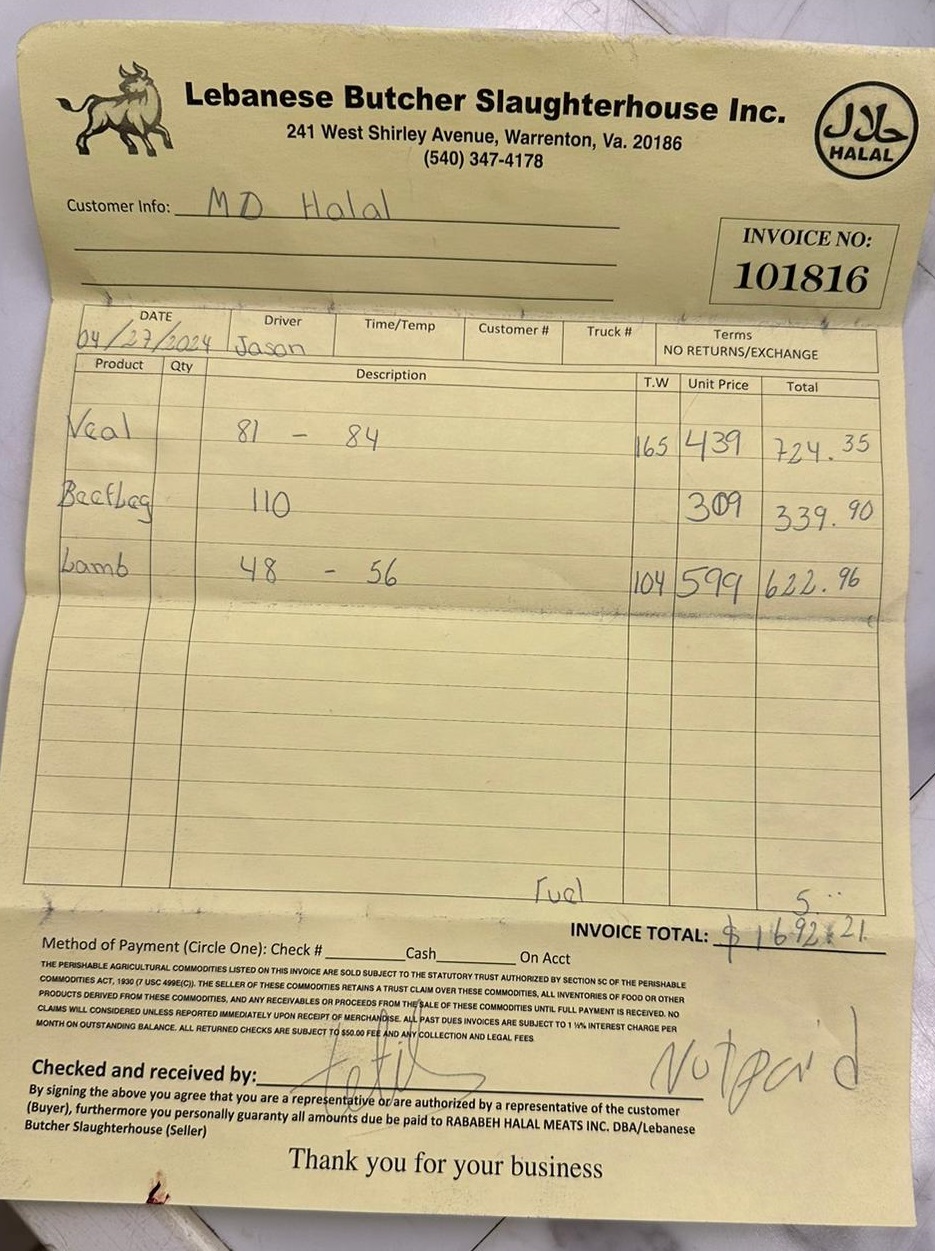 Lebanese Butcher Slaughterhouse Inc.
241 West Shirley Avenue, Warrenton, Va. 20186
(540) 347-4178
حلال
HALAL
Customer Info: MD Halal
INVOICE NO:
101816
DATE Driver Time/Temp Customer # Truck # Terms
04/27/2024 Jason NO RETURNS/EXCHANGE
Product Qty Description T.W Unit Price Total
Veal 81 - 84 165 439 724.35
BeefLeg 110 309 339.90
Lamb 48 - 56 104 599 622.96
Fuel 5
INVOICE TOTAL: $1692.21
Method of Payment (Circle One): Check # Cash On Acct
THE PERISHABLE AGRICULTURAL COMMODITIES LISTED ON THIS INVOICE ARE SOLD SUBJECT TO THE STATUTORY TRUST AUTHORIZED BY SECTION 5C OF THE PERISHABLE
COMMODITIES ACT, 1930 (7 USC 499E(C)). THE SELLER OF THESE COMMODITIES RETAINS A TRUST CLAIM OVER THESE COMMODITIES, ALL INVENTORIES OF FOOD OR OTHER
PRODUCTS DERIVED FROM THESE COMMODITIES, AND ANY RECEIVABLES OR PROCEEDS FROM THE SALE OF THESE COMMODITIES UNTIL FULL PAYMENT IS RECEIVED. NO
CLAIMS WILL CONSIDERED UNLESS REPORTED IMMEDIATELY UPON RECEIPT OF MERCHANDISE. ALL PAST DUES INVOICES ARE SUBJECT TO 1 ½% INTEREST CHARGE PER
MONTH ON OUTSTANDING BALANCE. ALL RETURNED CHECKS ARE SUBJECT TO $50.00 FEE AND ANY COLLECTION AND LEGAL FEES
Not paid
Checked and received by:
By signing the above you agree that you are a representative or are authorized by a representative of the customer
(Buyer), furthermore you personally guaranty all amounts due be paid to RABABEH HALAL MEATS INC. DBA/Lebanese
Butcher Slaughterhouse (Seller)
Thank you for your business